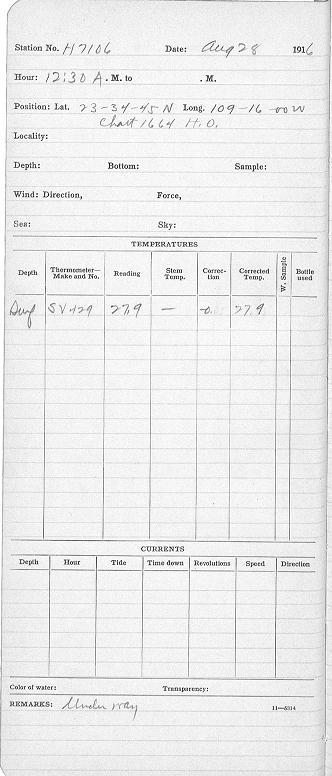 Station No. H7106 Date: Aug 28 1916
Hour: 12:30 A. M. to . M.
Position: Lat. 23-34-45 N Long. 109-16-00 W
Chart 1664 H.O.
Locality:
Depth: Bottom: Sample:
Wind: Direction, Force,
Sea: Sky:
TEMPERATURES
Depth Thermometer—Make and No. Reading Stem Temp. Correction Corrected Temp. W. Sample Bottle used
Surf SV 429 27.9 — -0. 27.9
CURRENTS
Depth Hour Tide Time down Revolutions Speed Direction
Color of water: Transparency:
REMARKS: Under way 11—5314